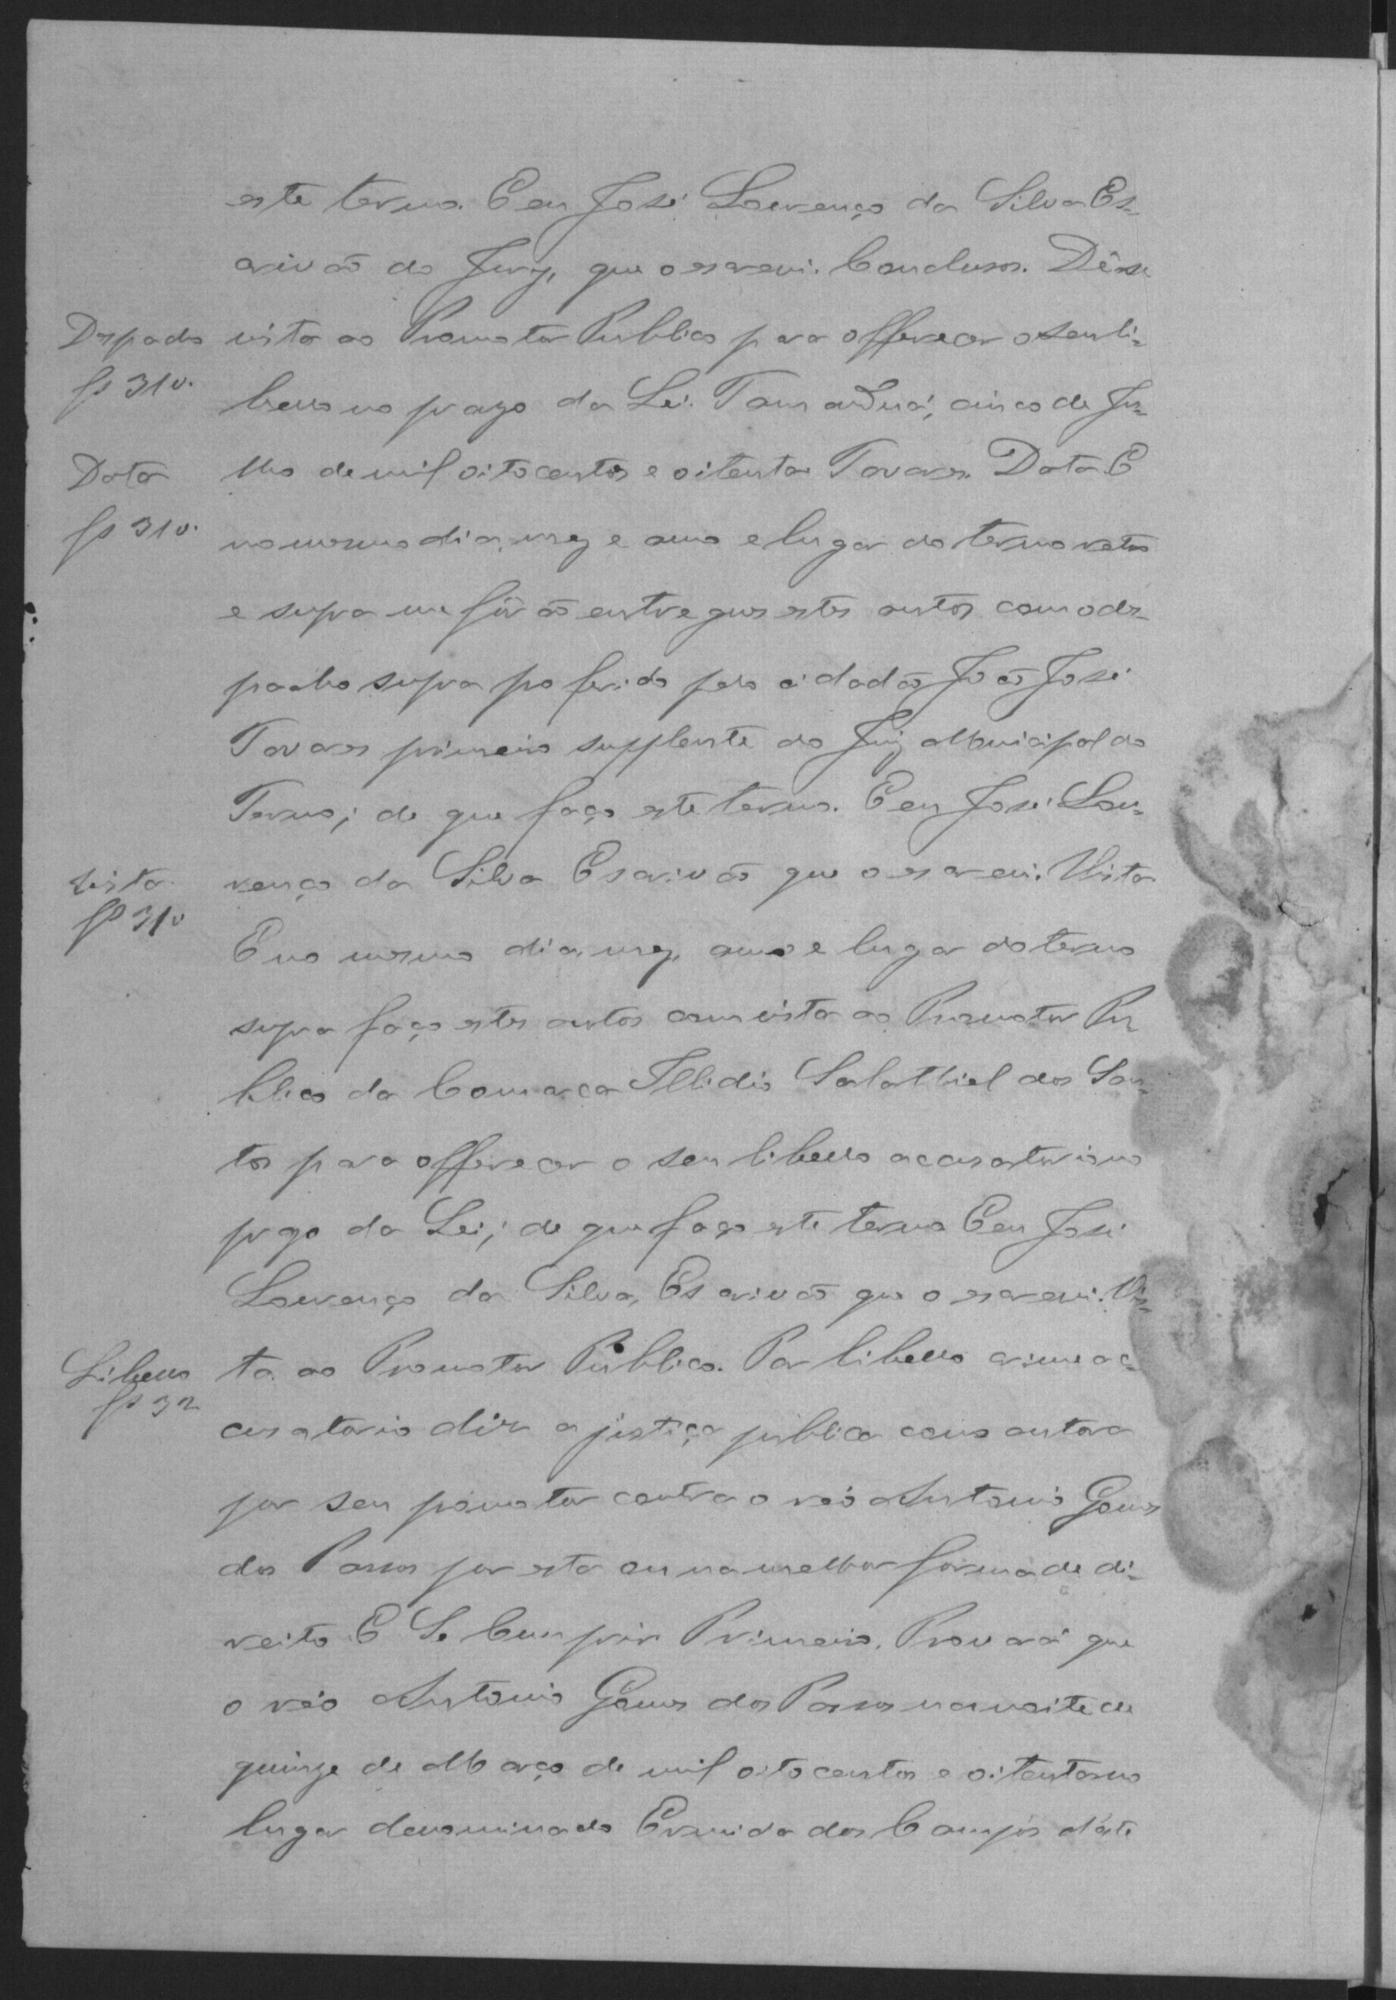 este termo. E eu José Lourenço da Silva Es-
crivão do Jury, que o escrevi. Conclusos. Dê-se
Despacho
fs 31v.
vista ao Promotor Publico para offerecer o seu li-
bello no prazo da Lei. Tamanduá, cinco de Ju-
Data
fs 31v.
lho de mil oitocentos e oitenta. Tavares. Data E
no mesmo dia, mez e anno e lugar do termo retro
e supra me fôrão entregues estes autos com o des-
pacho supra proferido pelo cidadão João José
Tavares primeiro supplente do Juiz Municipal do
Termo; de que faço este termo. E eu José Lou-
Vista
fs 31v
renço da Silva Escrivão que o escrevi. Vista
E no mesmo dia, mez, anno e lugar do termo
supra faço estes autos com vista ao Promotor Pu
blico da Comarca Illidio Salathiel dos San-
tos para offerecer o seu libello accusatorio no
prazo da Lei; de que faço este termo E eu José
Lourenço da Silva, Escrivão que o escrevi. Vis-
Libello
fs 32
ta ao Promotor Publico. Por libello crime ac-
cusatorio diz a justiça publica como autora
por seu promotor contra o réo Antonio Gomes
dos Passos por esta ou na melhor forma de di-
reito E. S. Cumprir Primeiro. Provará que
o réo Antonio Gomes dos Passos na noite de
quinze de Março de mil oitocentos e oitenta no
lugar denominado Ermida dos Campos d'este